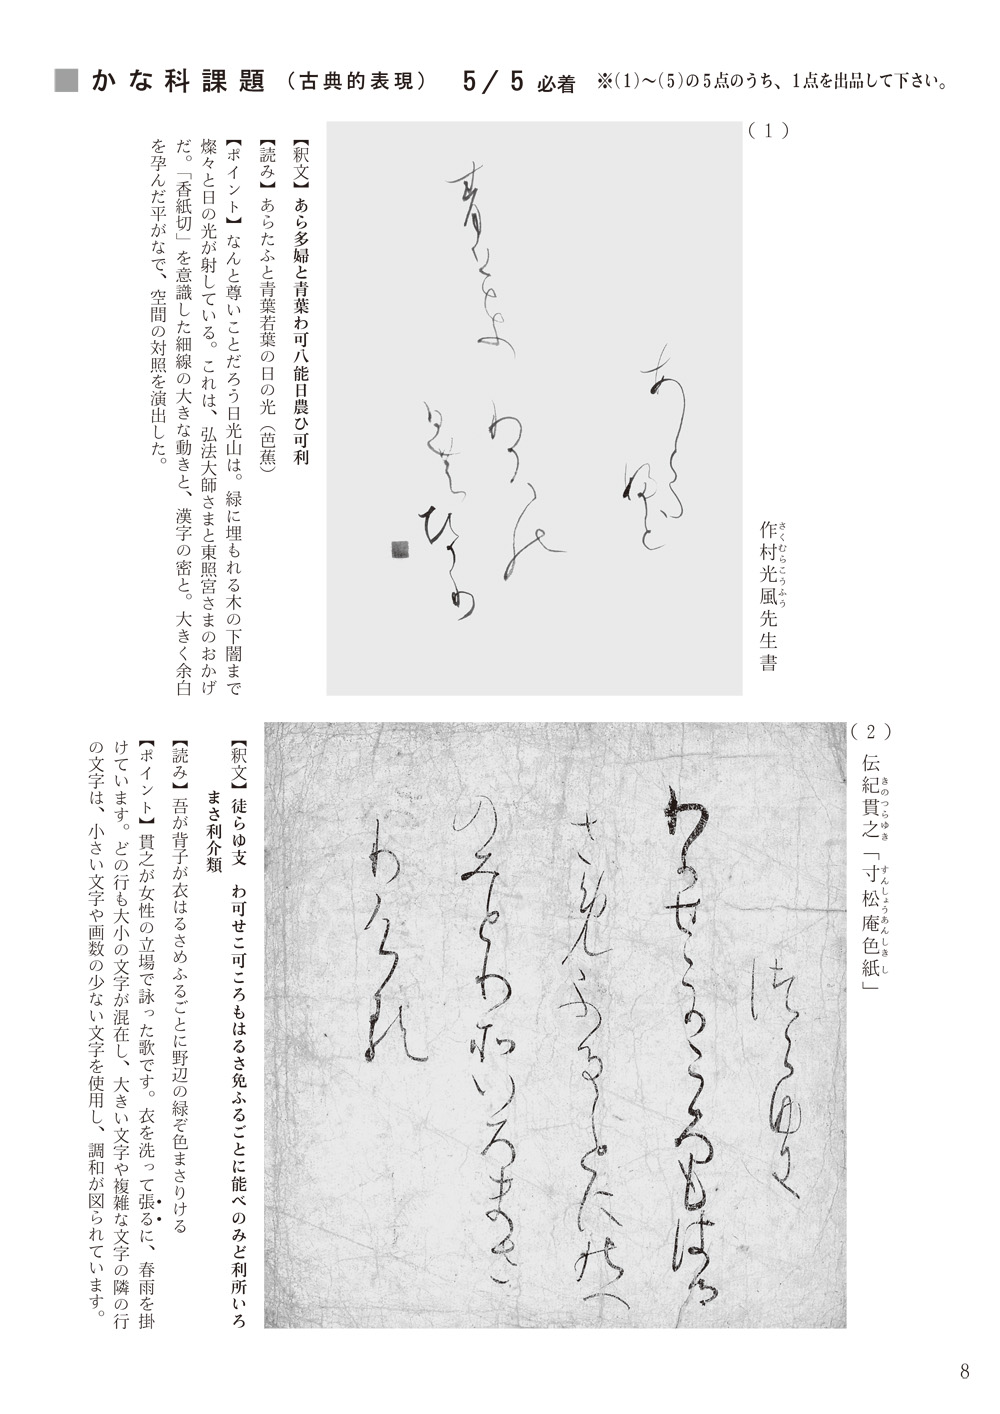 ■かな科課題（古典的表現） 5/5 必着 ※(1)～(5)の5点のうち、1点を出品して下さい。
(1)
作村光風先生書
さくむらこうふう
あら多
婦と
青葉
わ可八能
日農ひ可利
【釈文】あら多婦と青葉わ可八能日農ひ可利
【読み】あらたふと青葉若葉の日の光（芭蕉）
【ポイント】なんと尊いことだろう日光山は。緑に埋もれる木の下闇まで
燦々と日の光が射している。これは、弘法大師さまと東照宮さまのおかげ
だ。「香紙切」を意識した細線の大きな動きと、漢字の密と。大きく余白
を孕んだ平がなで、空間の対照を演出した。
(2)
伝紀貫之「寸松庵色紙」
きのつらゆき すんしょうあんしきし
徒らゆ支
わ可せこ可ころもはる
さ免ふることに能へ
のみとり所いろまさ
利介類
【釈文】徒らゆ支　わ可せこ可ころもはるさ免ふるごとに能べのみど利所いろ
まさ利介類
【読み】吾が背子が衣はるさめふるごとに野辺の緑ぞ色まさりける
【ポイント】貫之が女性の立場で詠った歌です。衣を洗って張るに、春雨を掛
けています。どの行も大小の文字が混在し、大きい文字や複雑な文字の隣の行
の文字は、小さい文字や画数の少ない文字を使用し、調和が図られています。
8